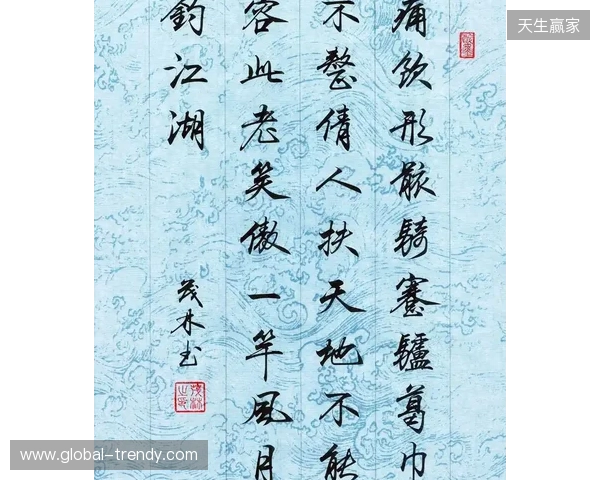 痛饮形骸騎蹇驢葛巾
不整倩人扶天地不能
容此老笑傲一竿風月
釣江湖
茂林书
天生赢家
www.global-trendy.com